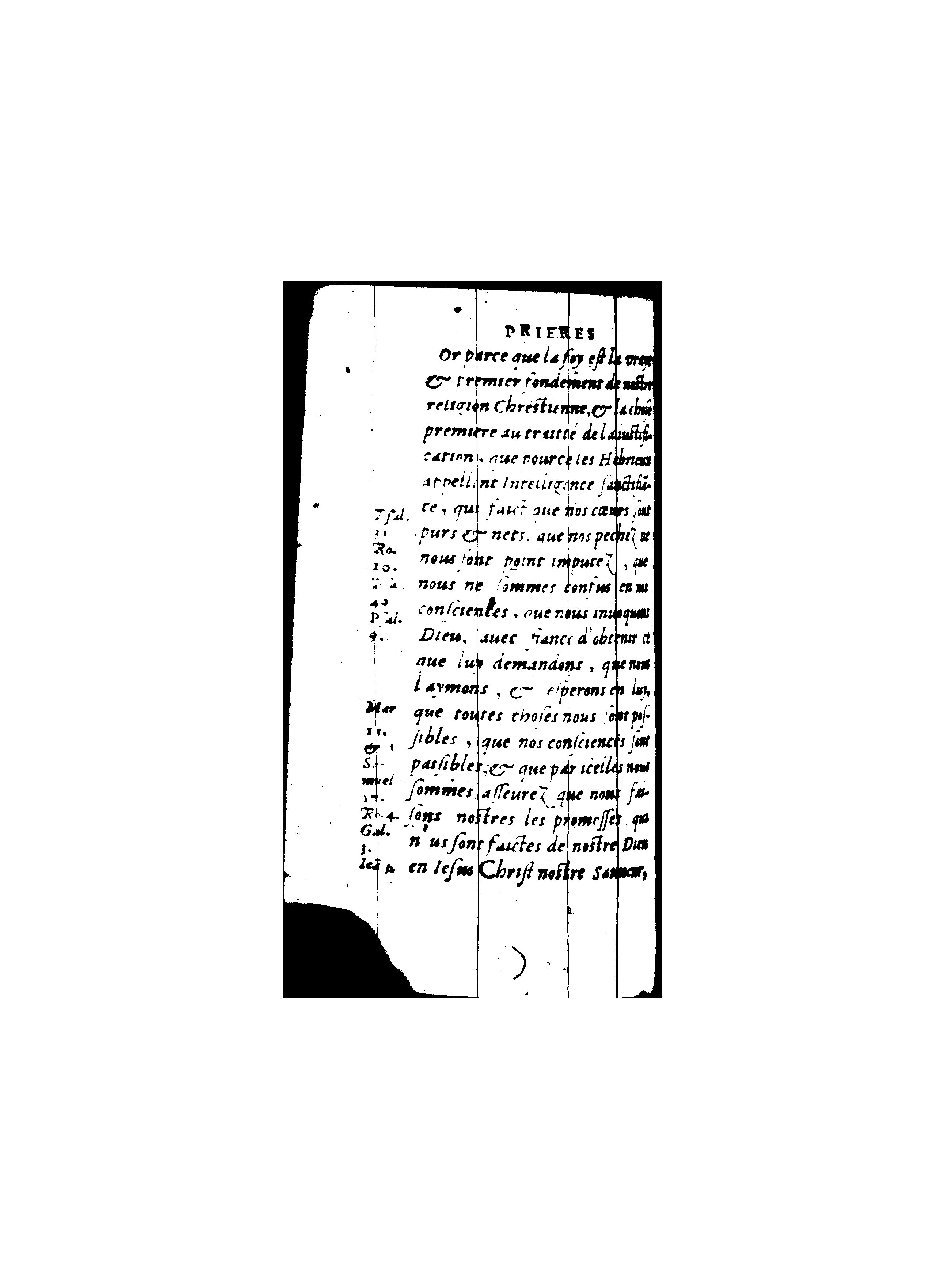 PRIERES
Or parce que la foy est la vraye
& premier fondement de nostre
religion Chrestienne, & la chose
premiere au traitté de la iustifi-
cation, que pource les Hebrieux
appellent Intelligence
te, qui faict que nos cœurs sont
purs & nets, que nos pechez ne
nous sont point imputez, que
nous ne sommes confus en nos
consciences, que nous inuoquons
Dieu, auec fiance d'obtenir ce
que luy demandons, que nous
l'aymons, & esperons en luy,
que toutes choses nous sont pos-
sibles, que nos consciences sont
paisibles, & que par icelles nous
sommes asseurez que nous fai-
sons nostres les promesses qui
nous sont faictes de nostre Dieu
en Iesus Christ nostre Sauueur,
Psal.
Ro.
10.
Psal.
4.
Mar
11.
&
muel
Ro. 4.
Gal.
3.